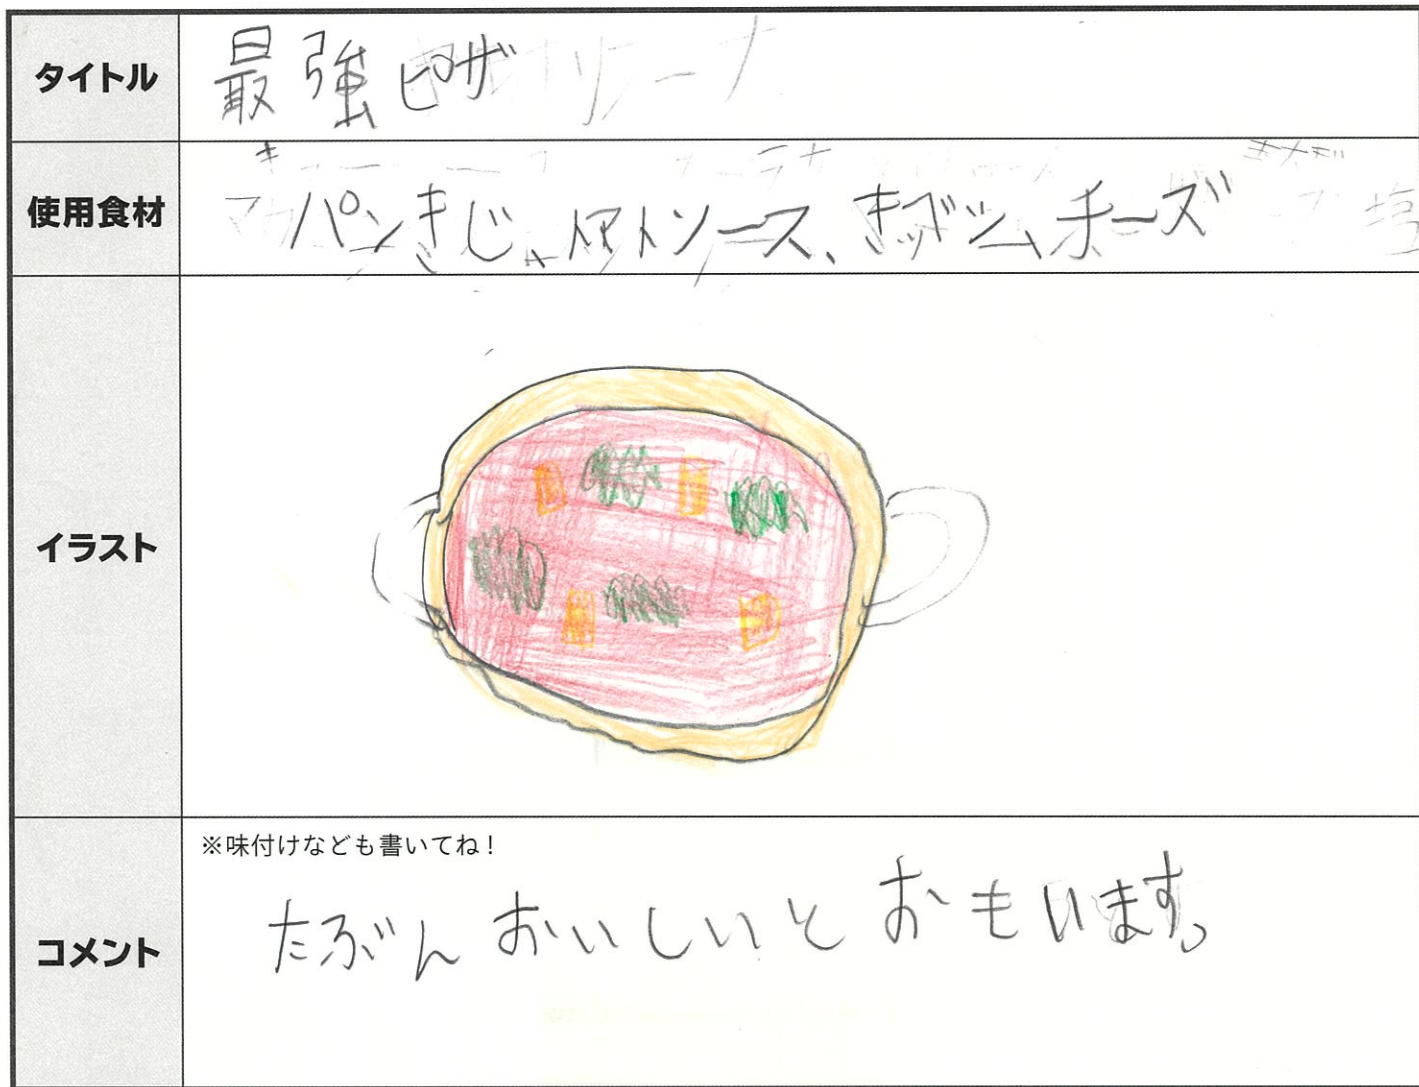 タイトル
最強ピザ
使用食材
パンきじ、トマトソース、チーズ
イラスト
※味付けなども書いてね！
コメント
たぶんおいしいとおもいます。